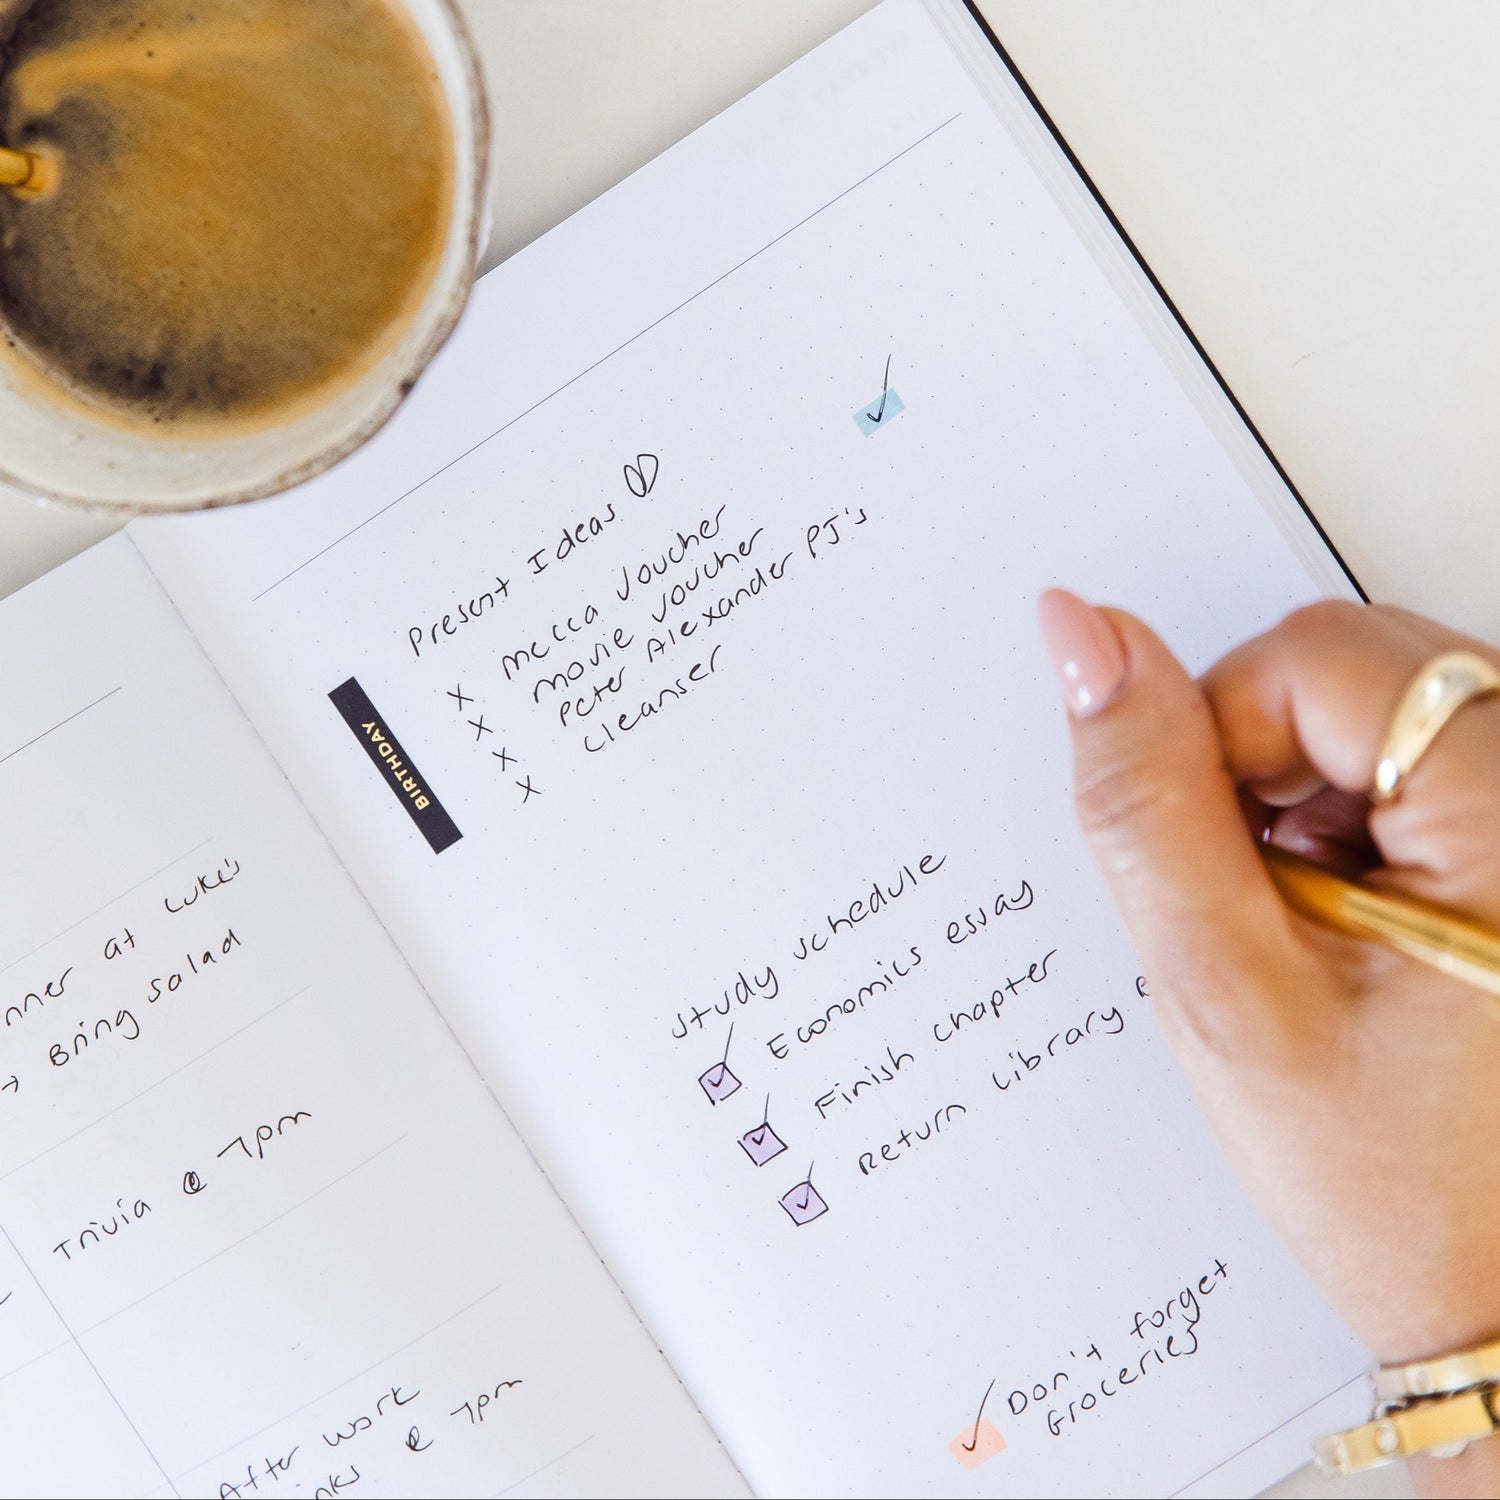 nner at Luke's
→ Bring salad
Trivia @ 7pm
After work
inks @ 7pm
BIRTHDAY
Present Ideas
x mecca voucher
x movie voucher
x Peter Alexander PJ's
x cleanser
Study schedule
Economics essay
Finish chapter
Return library
Don't forget
Groceries